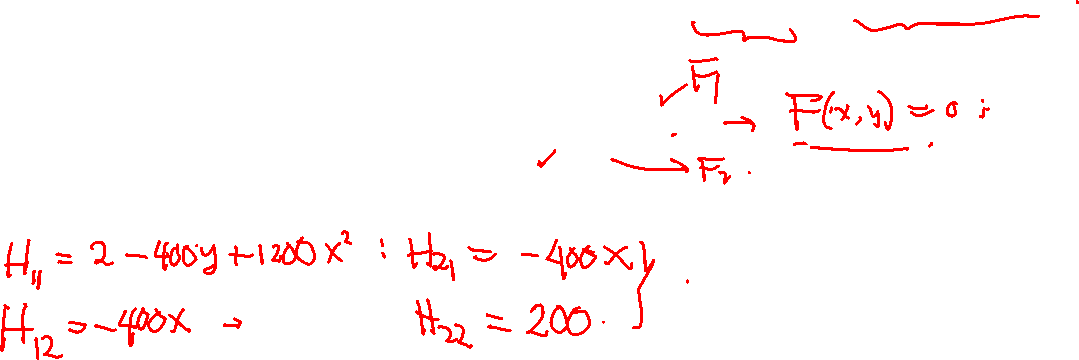 F₁
→ F(x, y) = 0 ;
→ F₂ .
H₁₁ = 2 - 400y + 1200x² ; H₂₁ = -400x }
H₁₂ = -400x → H₂₂ = 200.